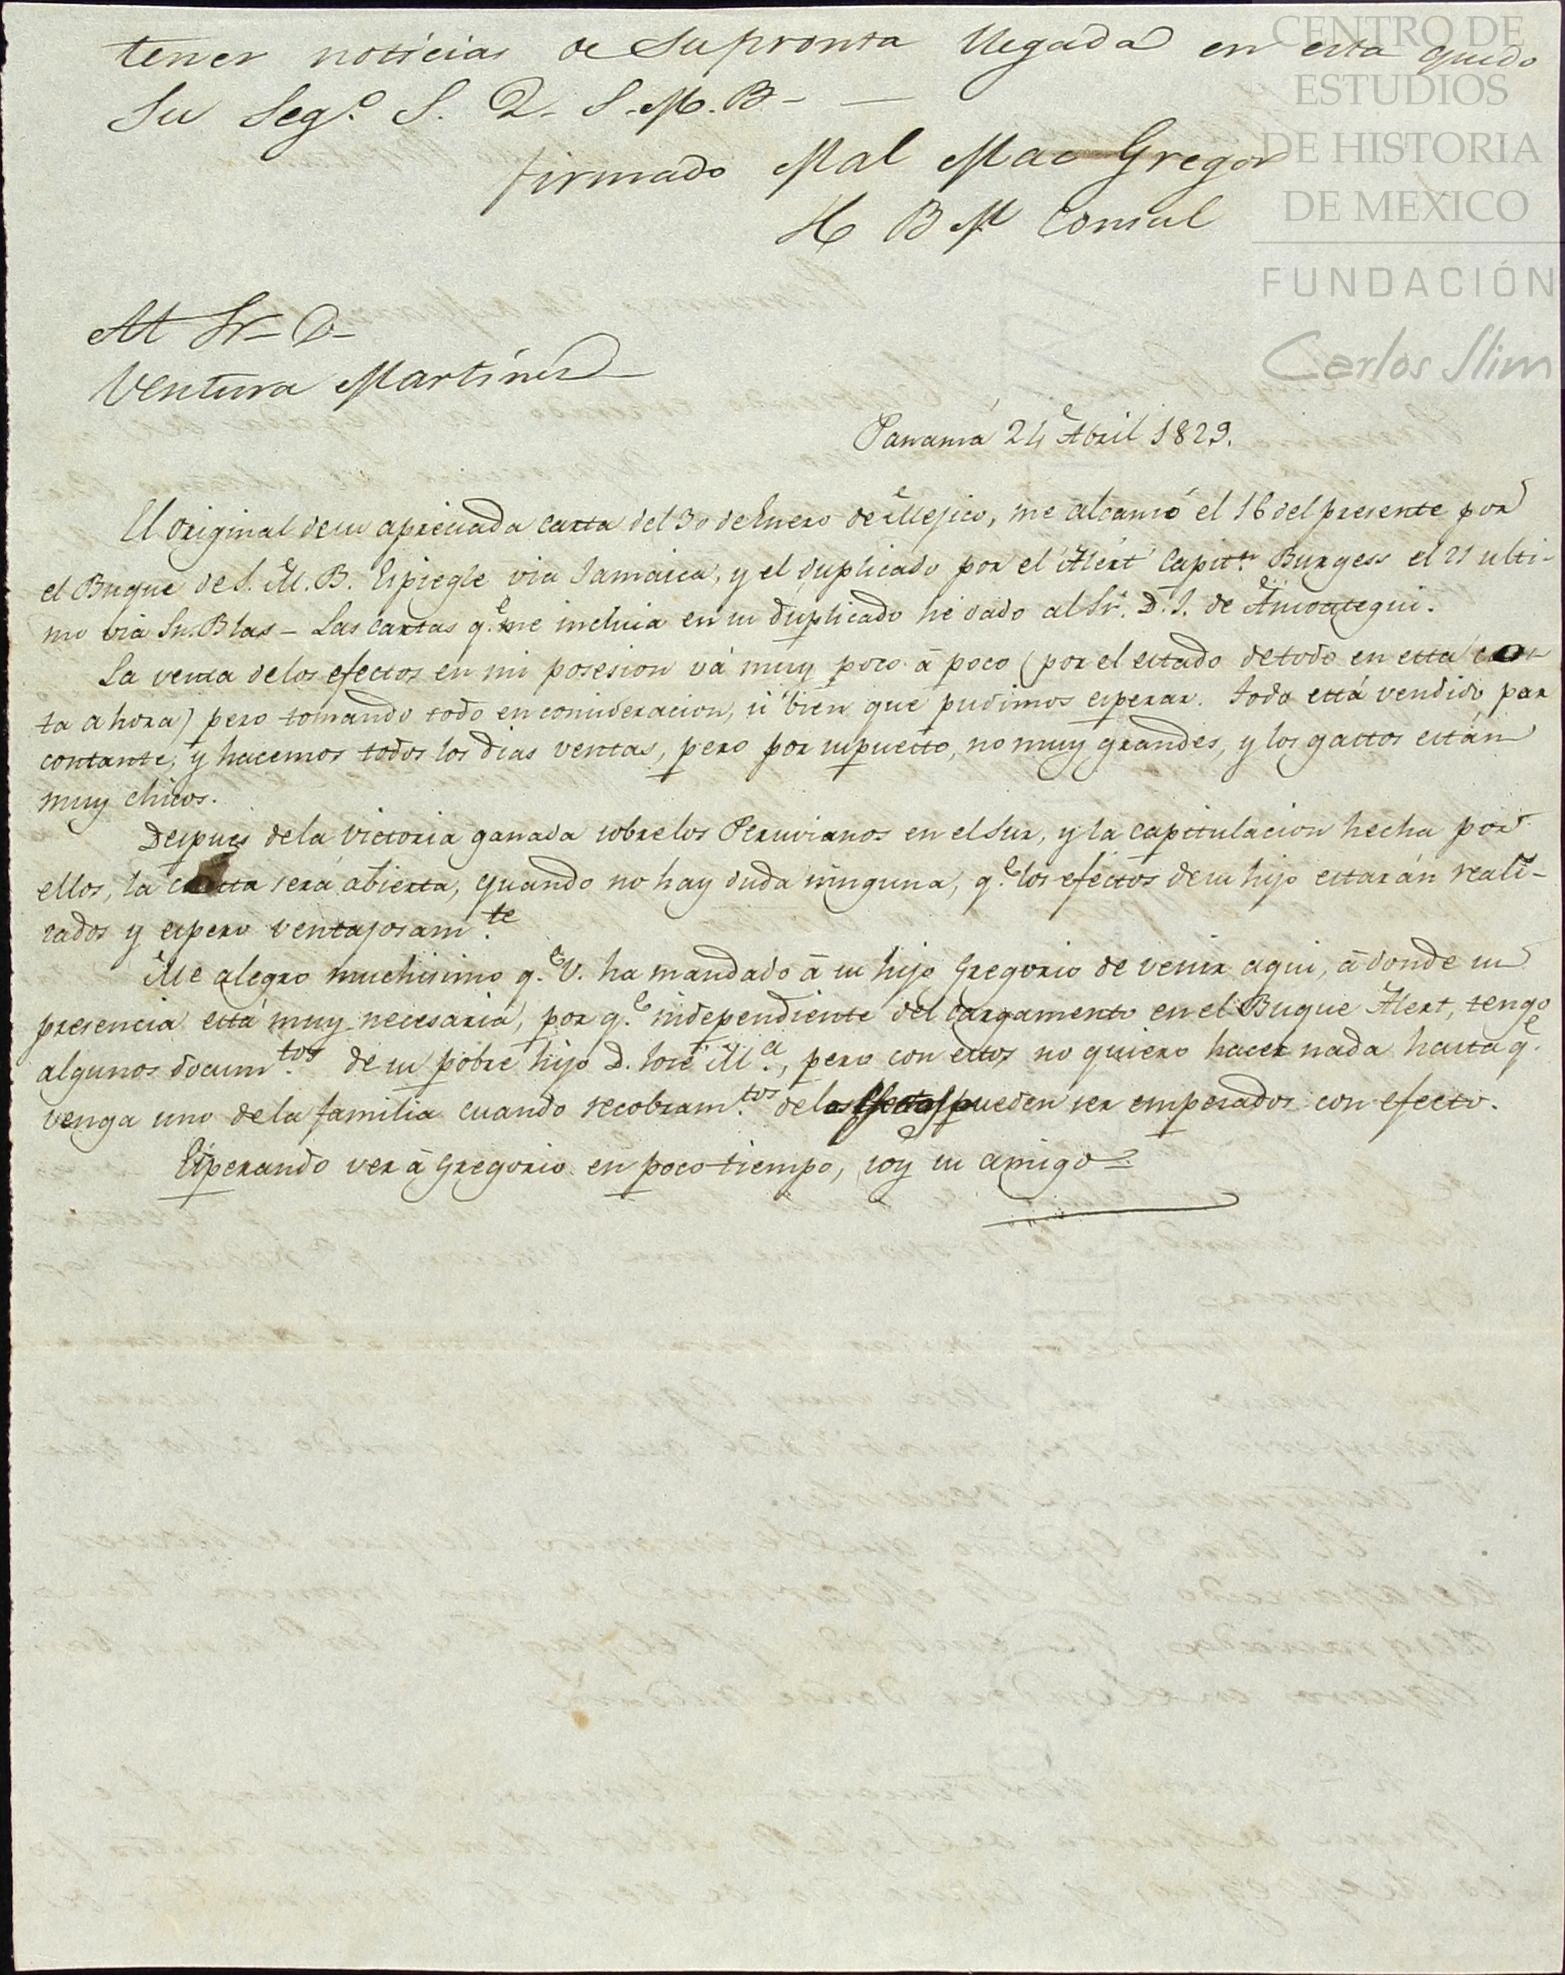 tener noticias de su pronta llegada en esta quedo
Su Seg.º S. Q. S. M. B.
firmado Mal Mac Gregor
H B M Consul
Al Sr. D.
Ventura Martínez
Panamá 24 Abril 1829.
El original de su apreciada carta del 30 de Enero de Mejico, me alcanzó el 16 del presente por
el Buque de S. M. B. Espiegle via Jamaica, y el duplicado por el Alert Capit.n Burgess el 21 ulti-
mo via Sn. Blas – Las cartas q.e me incluia en su duplicado he dado al Sr. D. J. de
La venta de los efectos en mi posesion vá muy poco â poco (por el estado de todo en esta cos-
ta ahora) pero tomando todo en consideracion, si bien que pudimos esperar. Todo está vendido por
contante, y hacemos todos los dias ventas, pero por supuesto, no muy grandes, y los gastos están
muy chicos.
Despues de la victoria ganada sobre los Peruvianos en el Sur, y la capitulacion hecha por
ellos, la costa será abierta, quando no hay duda ninguna, q.e los efectos de su hijo estarán reali-
zados y espero ventajosam.te
Me alegro muchisimo q.e V. ha mandado â su hijo Gregorio de venir aqui, â donde su
presencia está muy necesaria, por q.e independiente del cargamento en el Buque Alert, tengo
algunos docum.tos de su pobre hijo D. José M.a, pero con estos no quiero hacer nada hasta q.e
venga uno de la familia cuando recobram.tos de los efectos pueden ser empezados con efecto.
Esperando ver â Gregorio en poco tiempo, soy su amigo
CENTRO DE
ESTUDIOS
DE HISTORIA
DE MEXICO
FUNDACIÓN
Carlos Slim